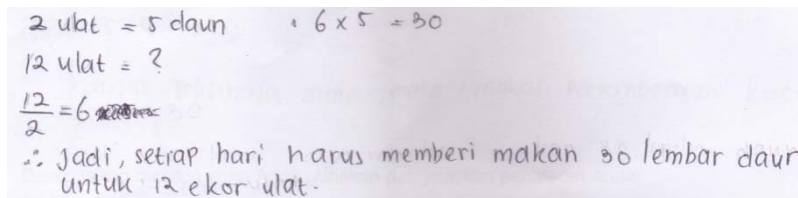 2 ulat = 5 daun • 6 x 5 = 30
12 ulat = ?
12/2 = 6
∴ Jadi, setiap hari harus memberi makan 30 lembar daun
untuk 12 ekor ulat.